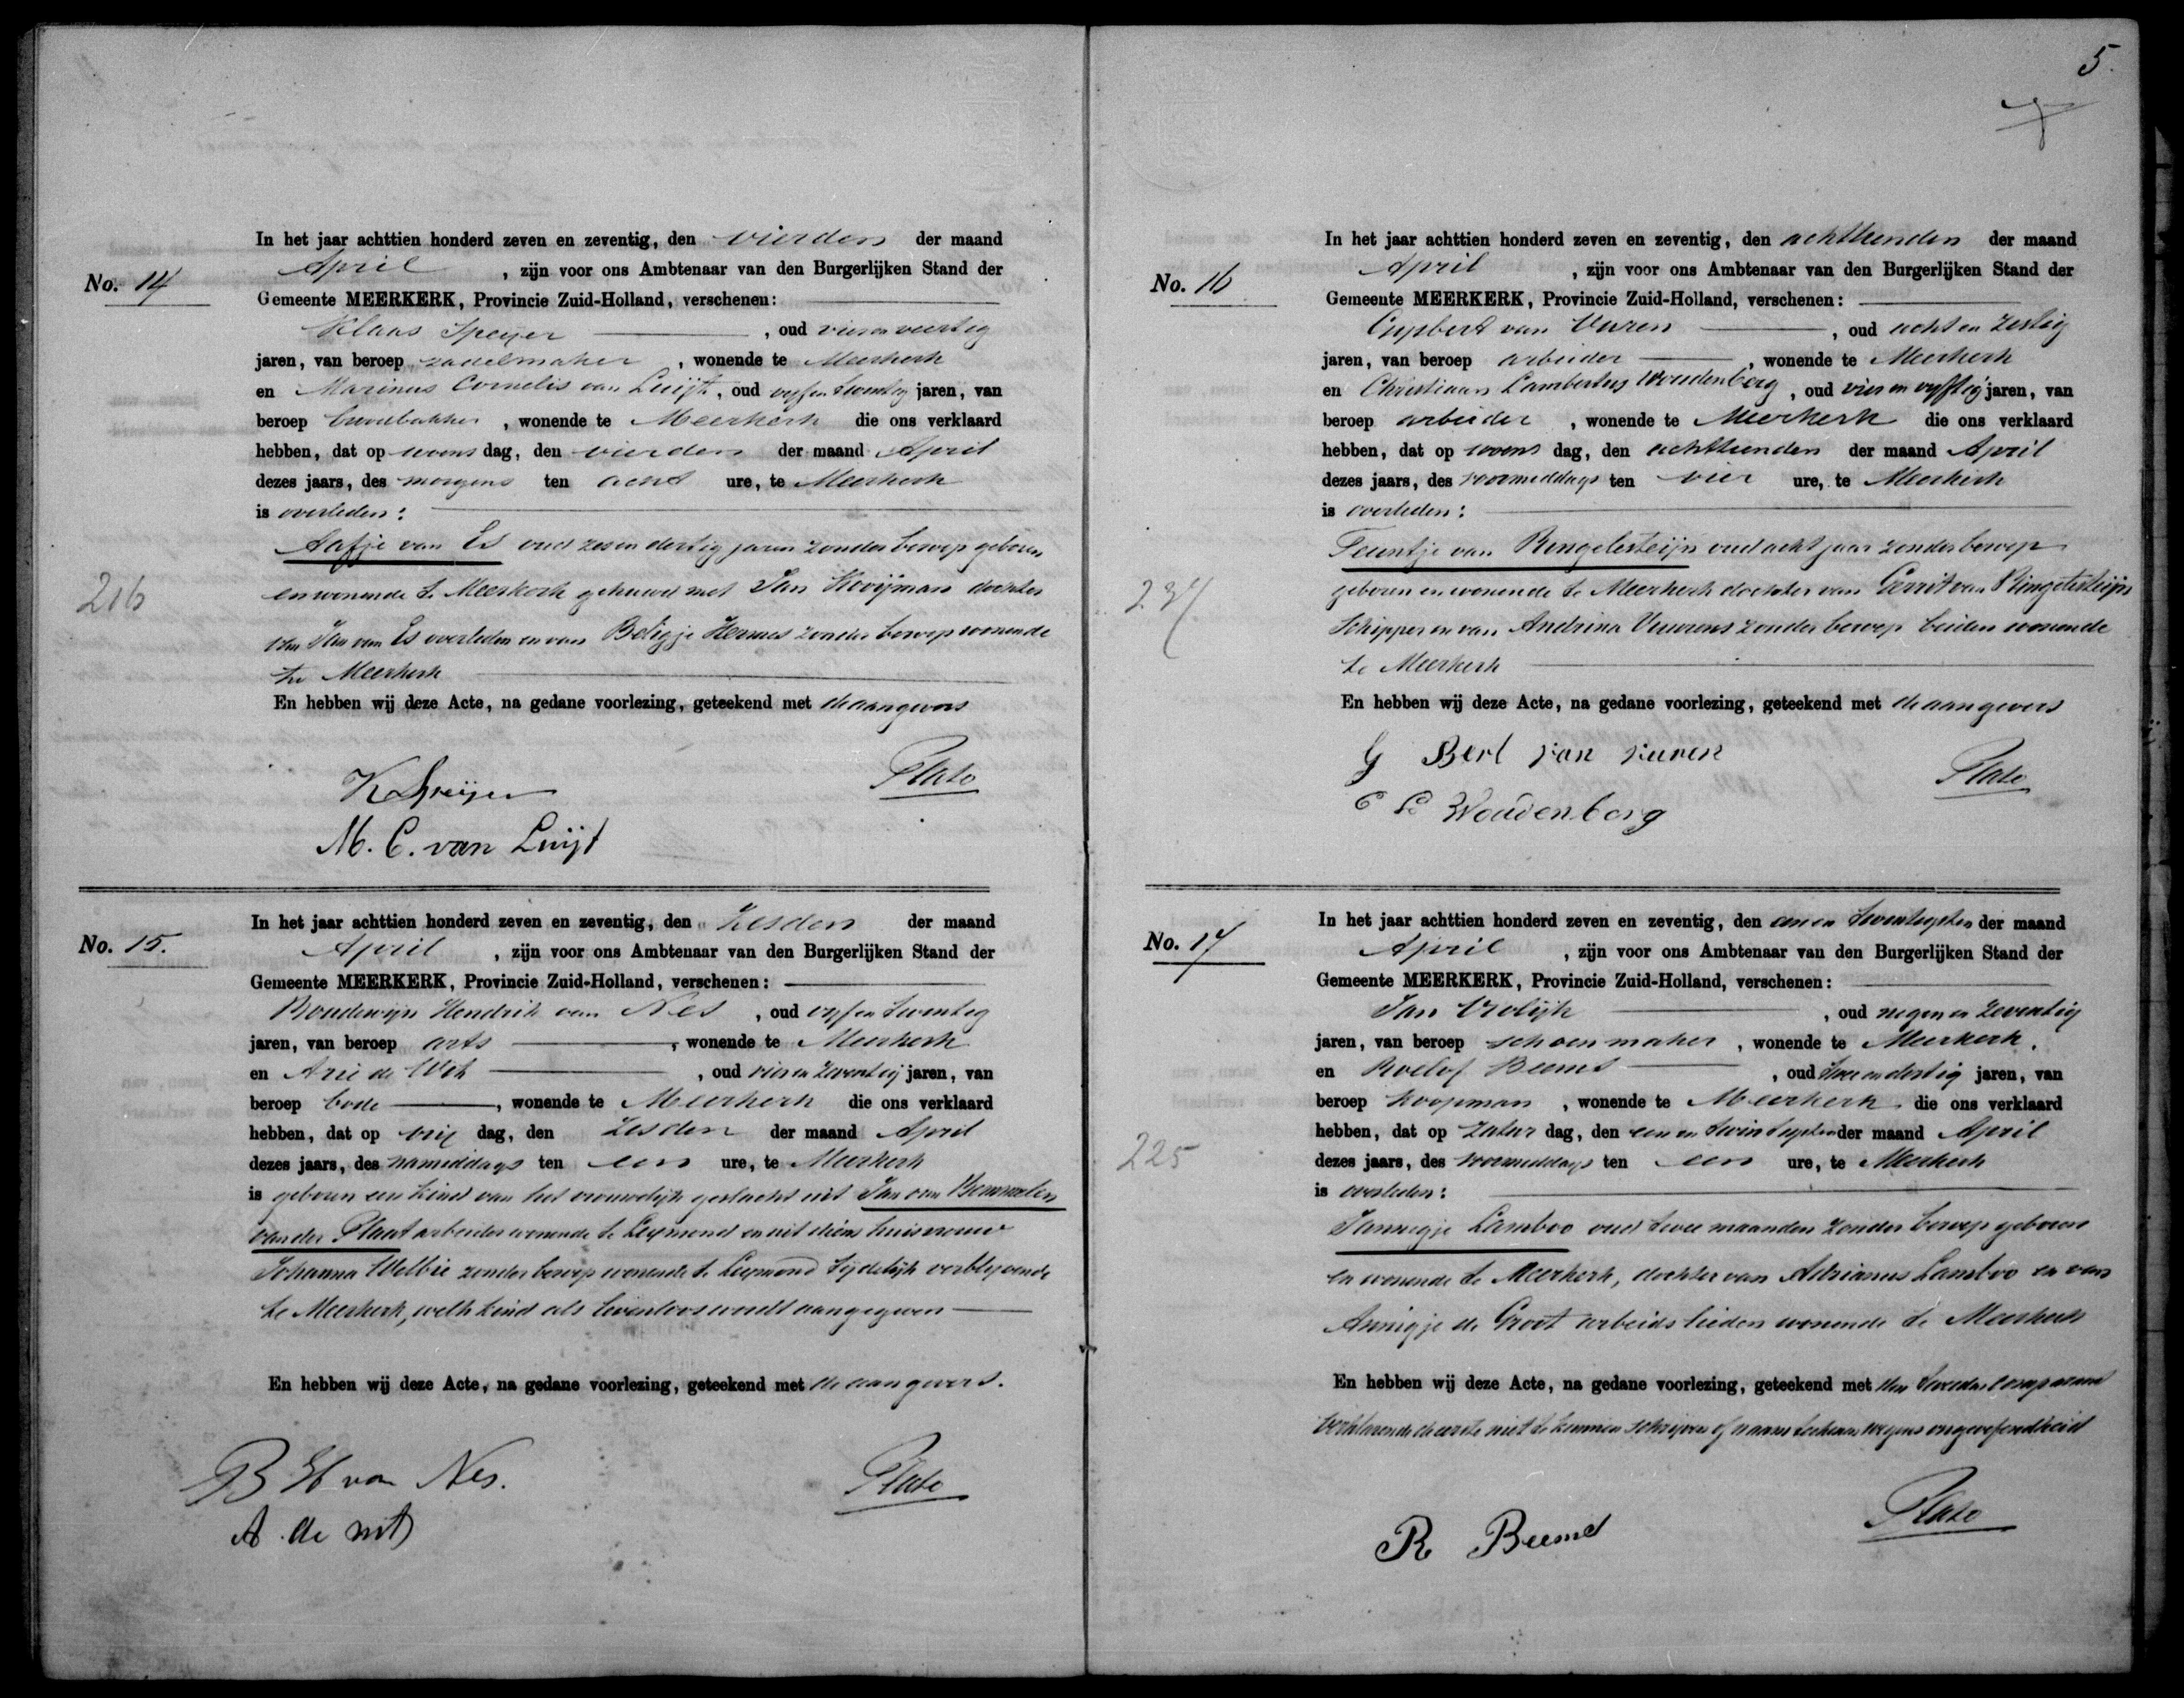 In het jaar achttien honderd zeven en zeventig, den vierden der maand
No. 14
April, zijn voor ons Ambtenaar van den Burgerlijken Stand der
Gemeente MEERKERK, Provincie Zuid-Holland, verschenen:
Klaas Speijer, oud vier en veertig
jaren, van beroep zadelmaker, wonende te Meerkerk
en Marinus Cornelis van Luijt, oud vyf en twintig jaren, van
beroep broodbakker, wonende te Meerkerk die ons verklaard
hebben, dat op woens dag, den vierden der maand April
dezes jaars, des morgens ten acht ure, te Meerkerk
is overleden:
Aafje van Es oud zes en dertig jaren zonder beroep geboren
en wonende te Meerkerk gehuwd met Jan Kooijman dochter
216
van Jan van Es overleden en van Beligje Hermes zonder beroep wonende
te Meerkerk
En hebben wij deze Acte, na gedane voorlezing, geteekend met de aangevers
K Speijer
Plato
M. C. van Luijt
In het jaar achttien honderd zeven en zeventig, den Zesden der maand
No. 15.
April, zijn voor ons Ambtenaar van den Burgerlijken Stand der
Gemeente MEERKERK, Provincie Zuid-Holland, verschenen:
Boudewijn Hendrik van Nes, oud vyf en twintig
jaren, van beroep arts, wonende te Meerkerk
en Arie de Wit, oud vier en zeventig jaren, van
beroep bode, wonende te Meerkerk die ons verklaard
hebben, dat op vrij dag, den Zesden der maand April
dezes jaars, des namiddags ten een ure, te Meerkerk
is geboren een kind van het vrouwelijk geslacht uit Jan van Bemmelen
van der Plaat arbeider wonende te Lexmond en uit diens huisvrouw
Johanna Welbie zonder beroep wonende te Lexmond tijdelijk verblijvende
te Meerkerk, welk kind als levenloos wordt aangegeven
En hebben wij deze Acte, na gedane voorlezing, geteekend met de aangevers.
B H van Nes.
Plato
A. de wit
5.
In het jaar achttien honderd zeven en zeventig, den achttienden der maand
No. 16
April, zijn voor ons Ambtenaar van den Burgerlijken Stand der
Gemeente MEERKERK, Provincie Zuid-Holland, verschenen:
Gijsbert van Vuren, oud acht en zestig
jaren, van beroep arbeider, wonende te Meerkerk
en Christiaan Lambertus Woudenberg, oud vier en vyftig jaren, van
beroep arbeider, wonende te Meerkerk die ons verklaard
hebben, dat op woens dag, den achttienden der maand April
dezes jaars, des voormiddags ten vier ure, te Meerkerk
is overleden:
Teuntje van Ringelesteijn oud acht jaar zonder beroep
234
geboren en wonende te Meerkerk dochter van Gerrit van Ringelesteijn
Schipper en van Andrina Vuurens zonder beroep beiden wonende
te Meerkerk
En hebben wij deze Acte, na gedane voorlezing, geteekend met de aangevers
G Bert van vuren
Plato
C L Woudenberg
In het jaar achttien honderd zeven en zeventig, den een en twintigsten der maand
No. 17
April, zijn voor ons Ambtenaar van den Burgerlijken Stand der
Gemeente MEERKERK, Provincie Zuid-Holland, verschenen:
Jan Vrolijk, oud negen en zeventig
jaren, van beroep schoenmaker, wonende te Meerkerk.
en Roelof Beems, oud twee en dertig jaren, van
beroep koopman, wonende te Meerkerk die ons verklaard
hebben, dat op zatur dag, den een en twintigsten der maand April
225
dezes jaars, des voormiddags ten een ure, te Meerkerk
is overleden:
Jannigje Lamboo oud twee maanden zonder beroep geboren
en wonende te Meerkerk, dochter van Adrianus Lamboo en van
Annigje de Groot arbeidslieden wonende te Meerkerk
En hebben wij deze Acte, na gedane voorlezing, geteekend met den tweeden comparant
verklarende de eerste niet te kunnen schrijven of naam teekenen wegens ongeoefendheid
R Beems
Plato